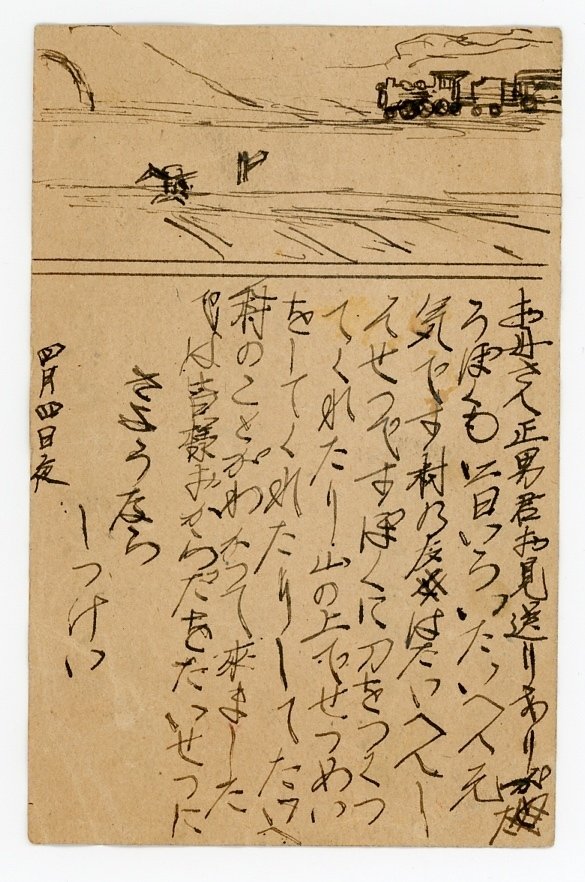 お母さん正男君お見送りありが
うぼくも 日いろ たいへん元
気です村の友はたいへんし
んせつですぼくに刀をつくつ
てくれたり山の上でせつめい
をしてくれたりしてたいへ
村のことがわかつて来ました
では皆様おからだをたいせつに
さようなら
しつけい
四月四日夜